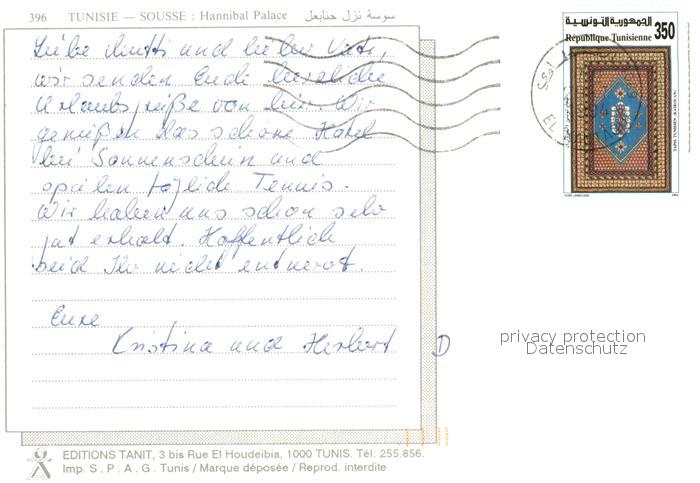 396 TUNISIE — SOUSSE : Hannibal Palace سوسة نزل حنابعل
Liebe Mutti und lieber Vati,
wir senden Euch herzliche
Urlaubsgrüße von hier. Wir
genießen das schöne Hotel
bei Sonnenschein und
spielen täglich Tennis.
Wir haben uns schon sehr
gut erholt. Hoffentlich
seid Ihr nicht entnervt.
Eure
Kristina und Herbert
D
الجمهورية التونسية
République Tunisienne 350
privacy protection
Datenschutz
EDITIONS TANIT, 3 bis Rue El Houdeibia, 1000 TUNIS. Tél: 255.856.
Imp. S.P.A.G. Tunis / Marque déposée / Reprod. interdite